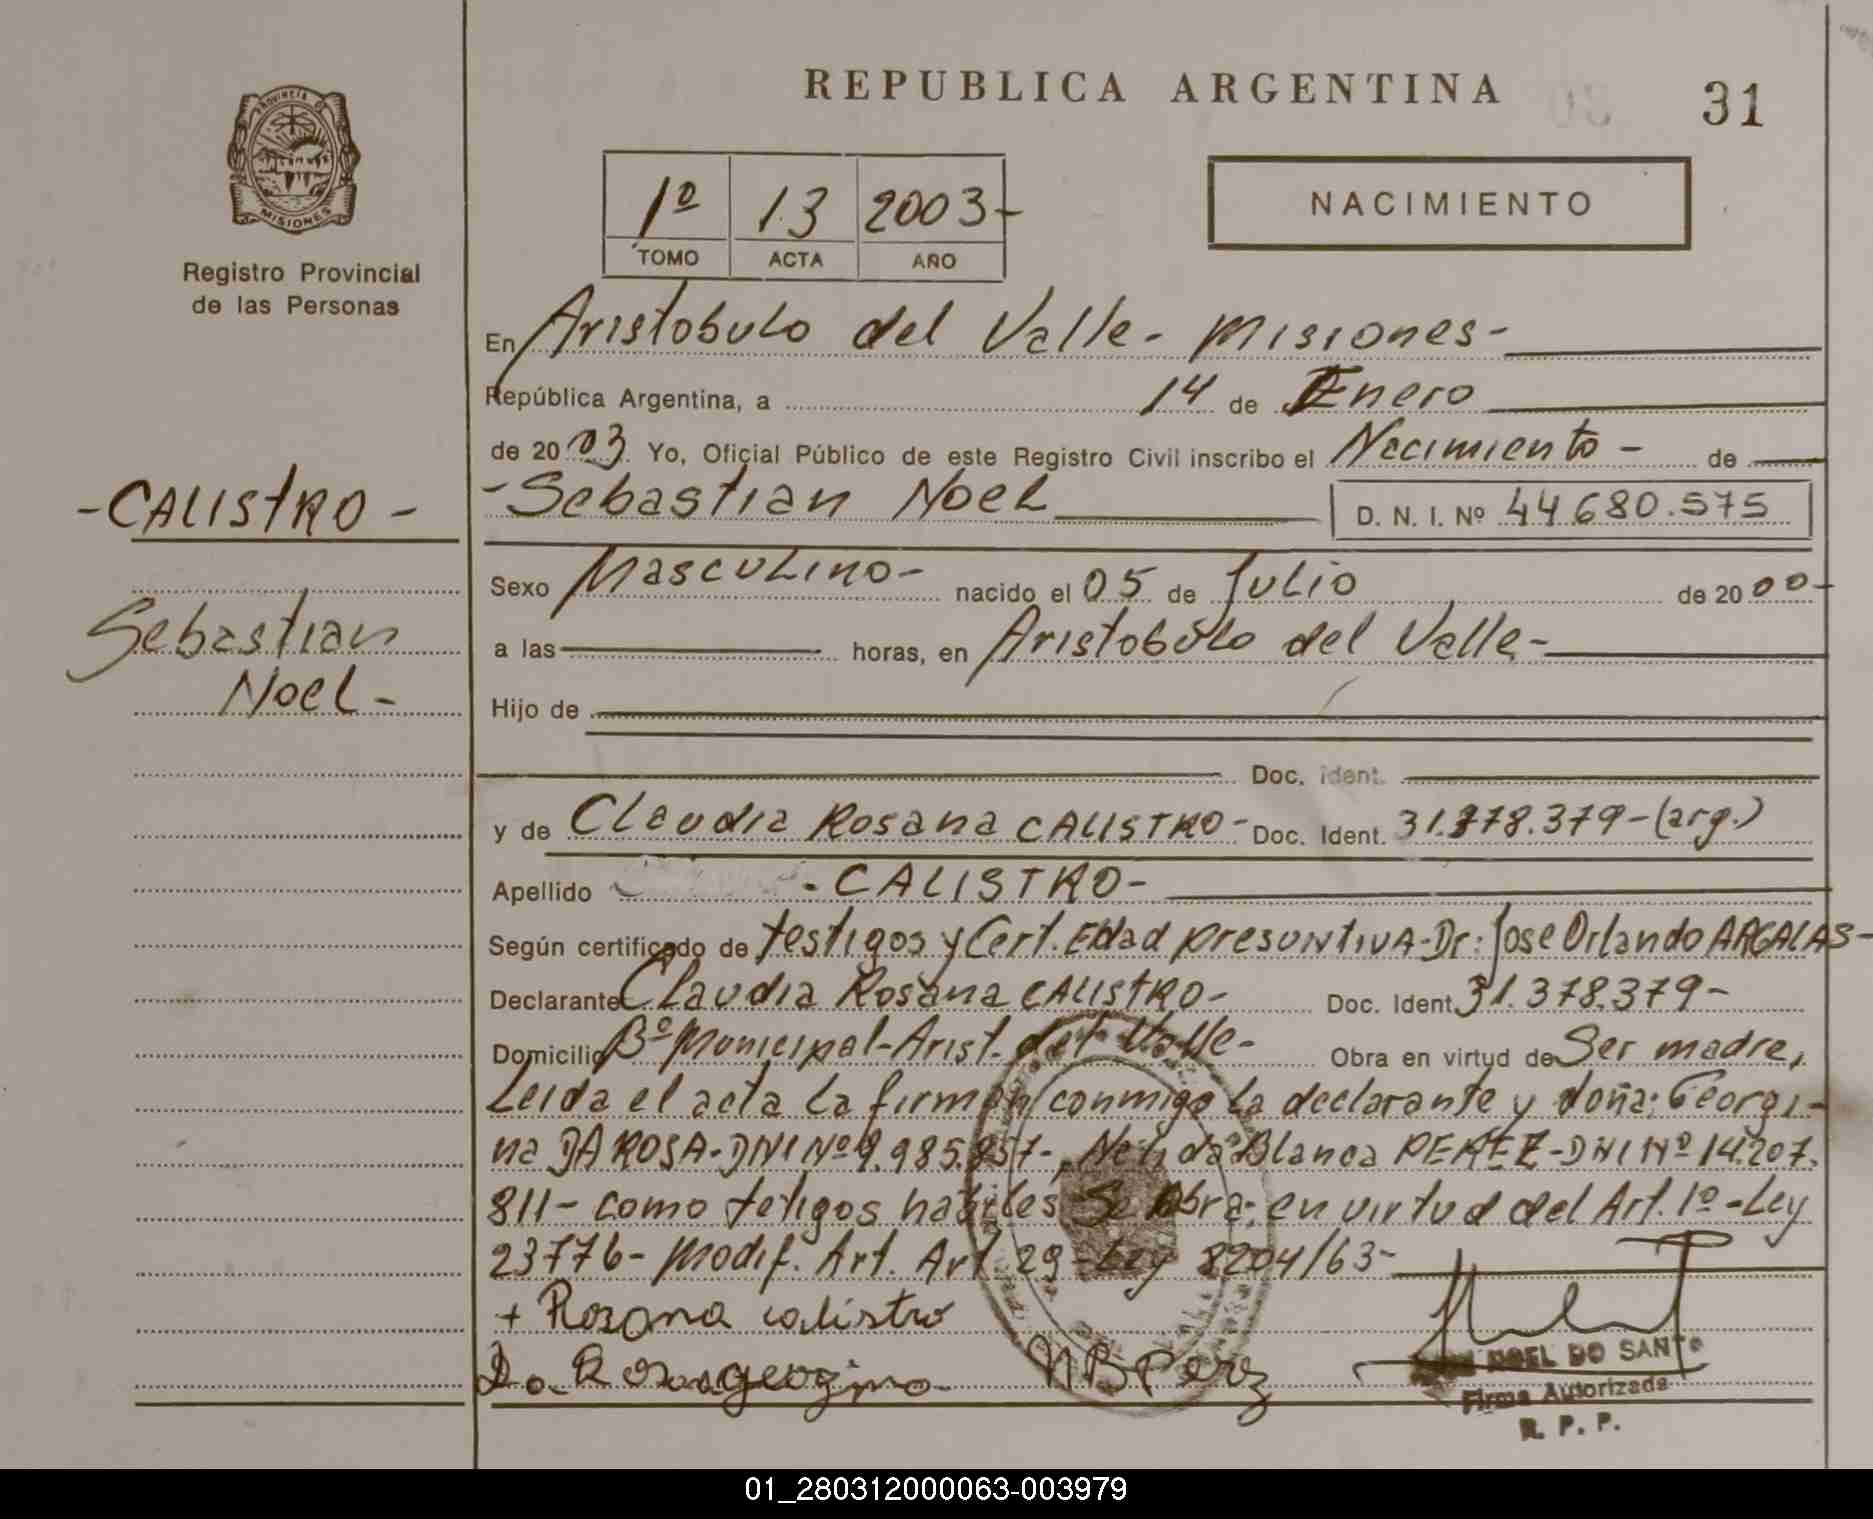 REPUBLICA ARGENTINA
31
PROVINCIA DE
MISIONES
Registro Provincial
de las Personas
1º 13 2003-
TOMO ACTA AÑO
NACIMIENTO
En Aristobulo del Valle- Misiones-
República Argentina, a 14 de Enero
de 2003 Yo, Oficial Público de este Registro Civil inscribo el Nacimiento - de
-CALISTRO-
Sebastian
Noel-
-Sebastian Noel D. N. I. Nº 44680.575
Sexo Masculino- nacido el 05 de Julio de 2000-
a las horas, en Aristobulo del Valle-
Hijo de
Doc. Ident.
y de Claudia Rosana CALISTRO- Doc. Ident. 31.378.379-(arg.)
Apellido -CALISTRO-
Según certificado de testigos y Cert. Edad presuntiva-Dr: Jose Orlando ARGALAS-
Declarante Claudia Rosana CALISTRO- Doc. Ident. 31.378.379-
Domicilio Bº Municipal-Arist. del Valle- Obra en virtud de Ser madre,
Leida el acta la firman conmigo la declarante y doña: Georgi-
na DA ROSA-DNI Nº 9.985.857-, Nelida Blanca PEREZ-DNI Nº 14.207.
811- como tetigos habiles Se Obra: en virtud del Art. 1º-Ley
23776- Modif. Art. Art. 29-Ley 8204/63-
+ Rosana calistro
Da Rosa georgina
NBPerez
NOEL DO SANTO
Firma Autorizada
R. P. P.
01_280312000063-003979